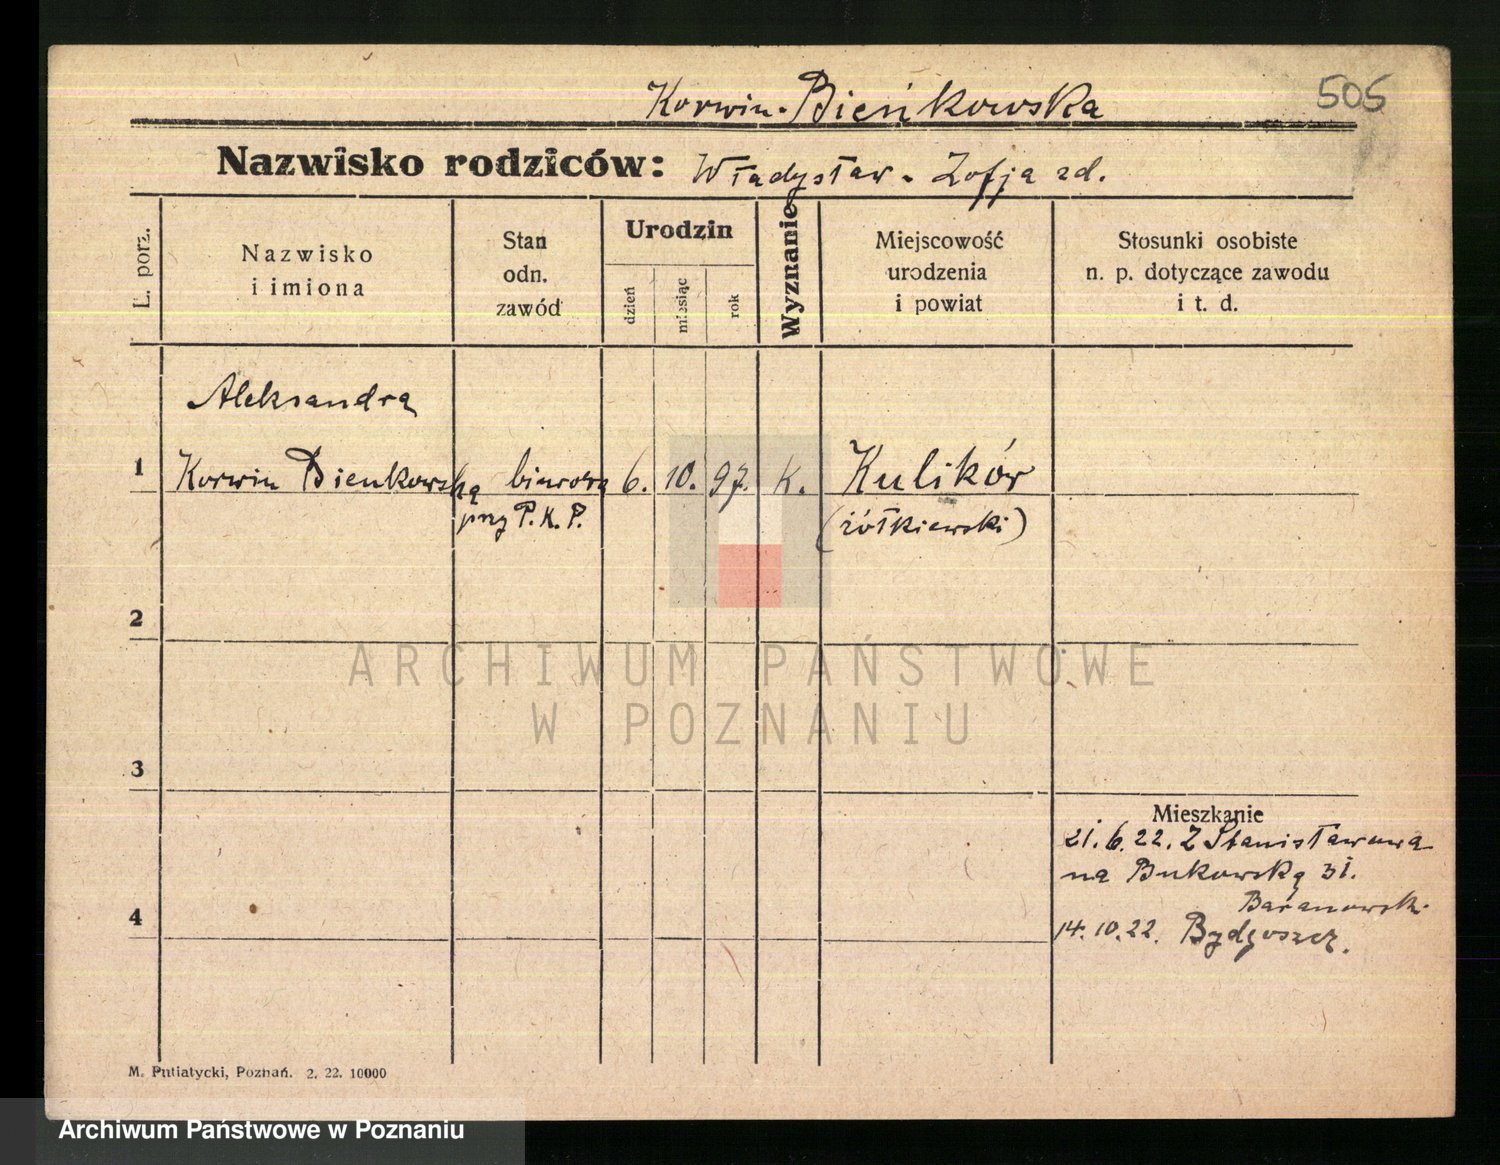 505
Korwin-Bieńkowska
Nazwisko rodziców: Władysław - Zofja zd.
L. porz.
Nazwisko
i imiona
Stan
odn.
zawód
Urodzin
dzień
miesiąc
rok
Wyznanie
Miejscowość
urodzenia
i powiat
Stosunki osobiste
n. p. dotyczące zawodu
i t. d.
Aleksandra
1 Korwin Bienkowska biurowa 6. 10. 97. k. Kulików
przy P.K.P. (żółkiewski)
2
ARCHIWUM PAŃSTWOWE
W POZNANIU
3
Mieszkanie
21.6.22. Z Stanisławowa
na Bukowską 31.
Baranowski
4 14.10.22. Bydgoszcz.
M. Putiatycki, Poznań. 2. 22. 10000
Archiwum Państwowe w Poznaniu